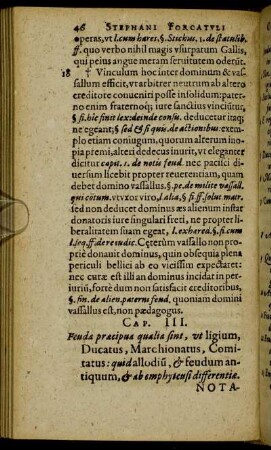 46 STEPHANI FORCATVLI
operas, vt l. cum hæres. §. Stichus. 1. de statu lib.
ff. quo verbo nihil magis vsurpatum Gallis,
qui peius angue meram seruitutem oderūt.
18 † Vinculum hoc inter dominum & vas-
sallum efficit, vt arbiter neutrum ab altero
creditore conueniri posse insolidum: pater-
no enim fraternoq; iure sanctius vinciūtur,
§. si hic finit lex. deinde consu. deducetur itaq;
ne egeant; § sed & si quis. de actionibus: exem-
plo etiam coniugum, quorum alterum ino-
pia premi, alteri dedecus inurit, vt eleganter
dicitur capit. 1. de notis feud. nec pactici diuer-
sum licebit propter reuerentiam, quam
debet domino vassallus. §. pe. de milite vassall.
qui cōtum. vt vxor viro, l. alia, § si ff. solut matr.
sed non deducet dominus æs alienum instar
donatoris iure singulari freti, ne propter li-
beralitatem suam egeat, l. exhered. §. si cum
l. seq. ff de re iudic. Ceterùm vassallo non pro-
priè donauit dominus, quin obsequia plena
periculi bellici ab eo vicissim expectaret:
nec curæ est illi an dominus incidat in per-
iuriū, forte dum non satisfacit creditoribus,
§. fin. de alien. paterni feud. quoniam domini
vassallus est, non pædagogus.
CAP. III.
Feuda præcipua qualia sint, vt ligium,
Ducatus, Marchionatus, Comi-
tatus: quid allodiū, & feudum an-
tiquum, & ab emphyteusi differentiæ.
NOTA-